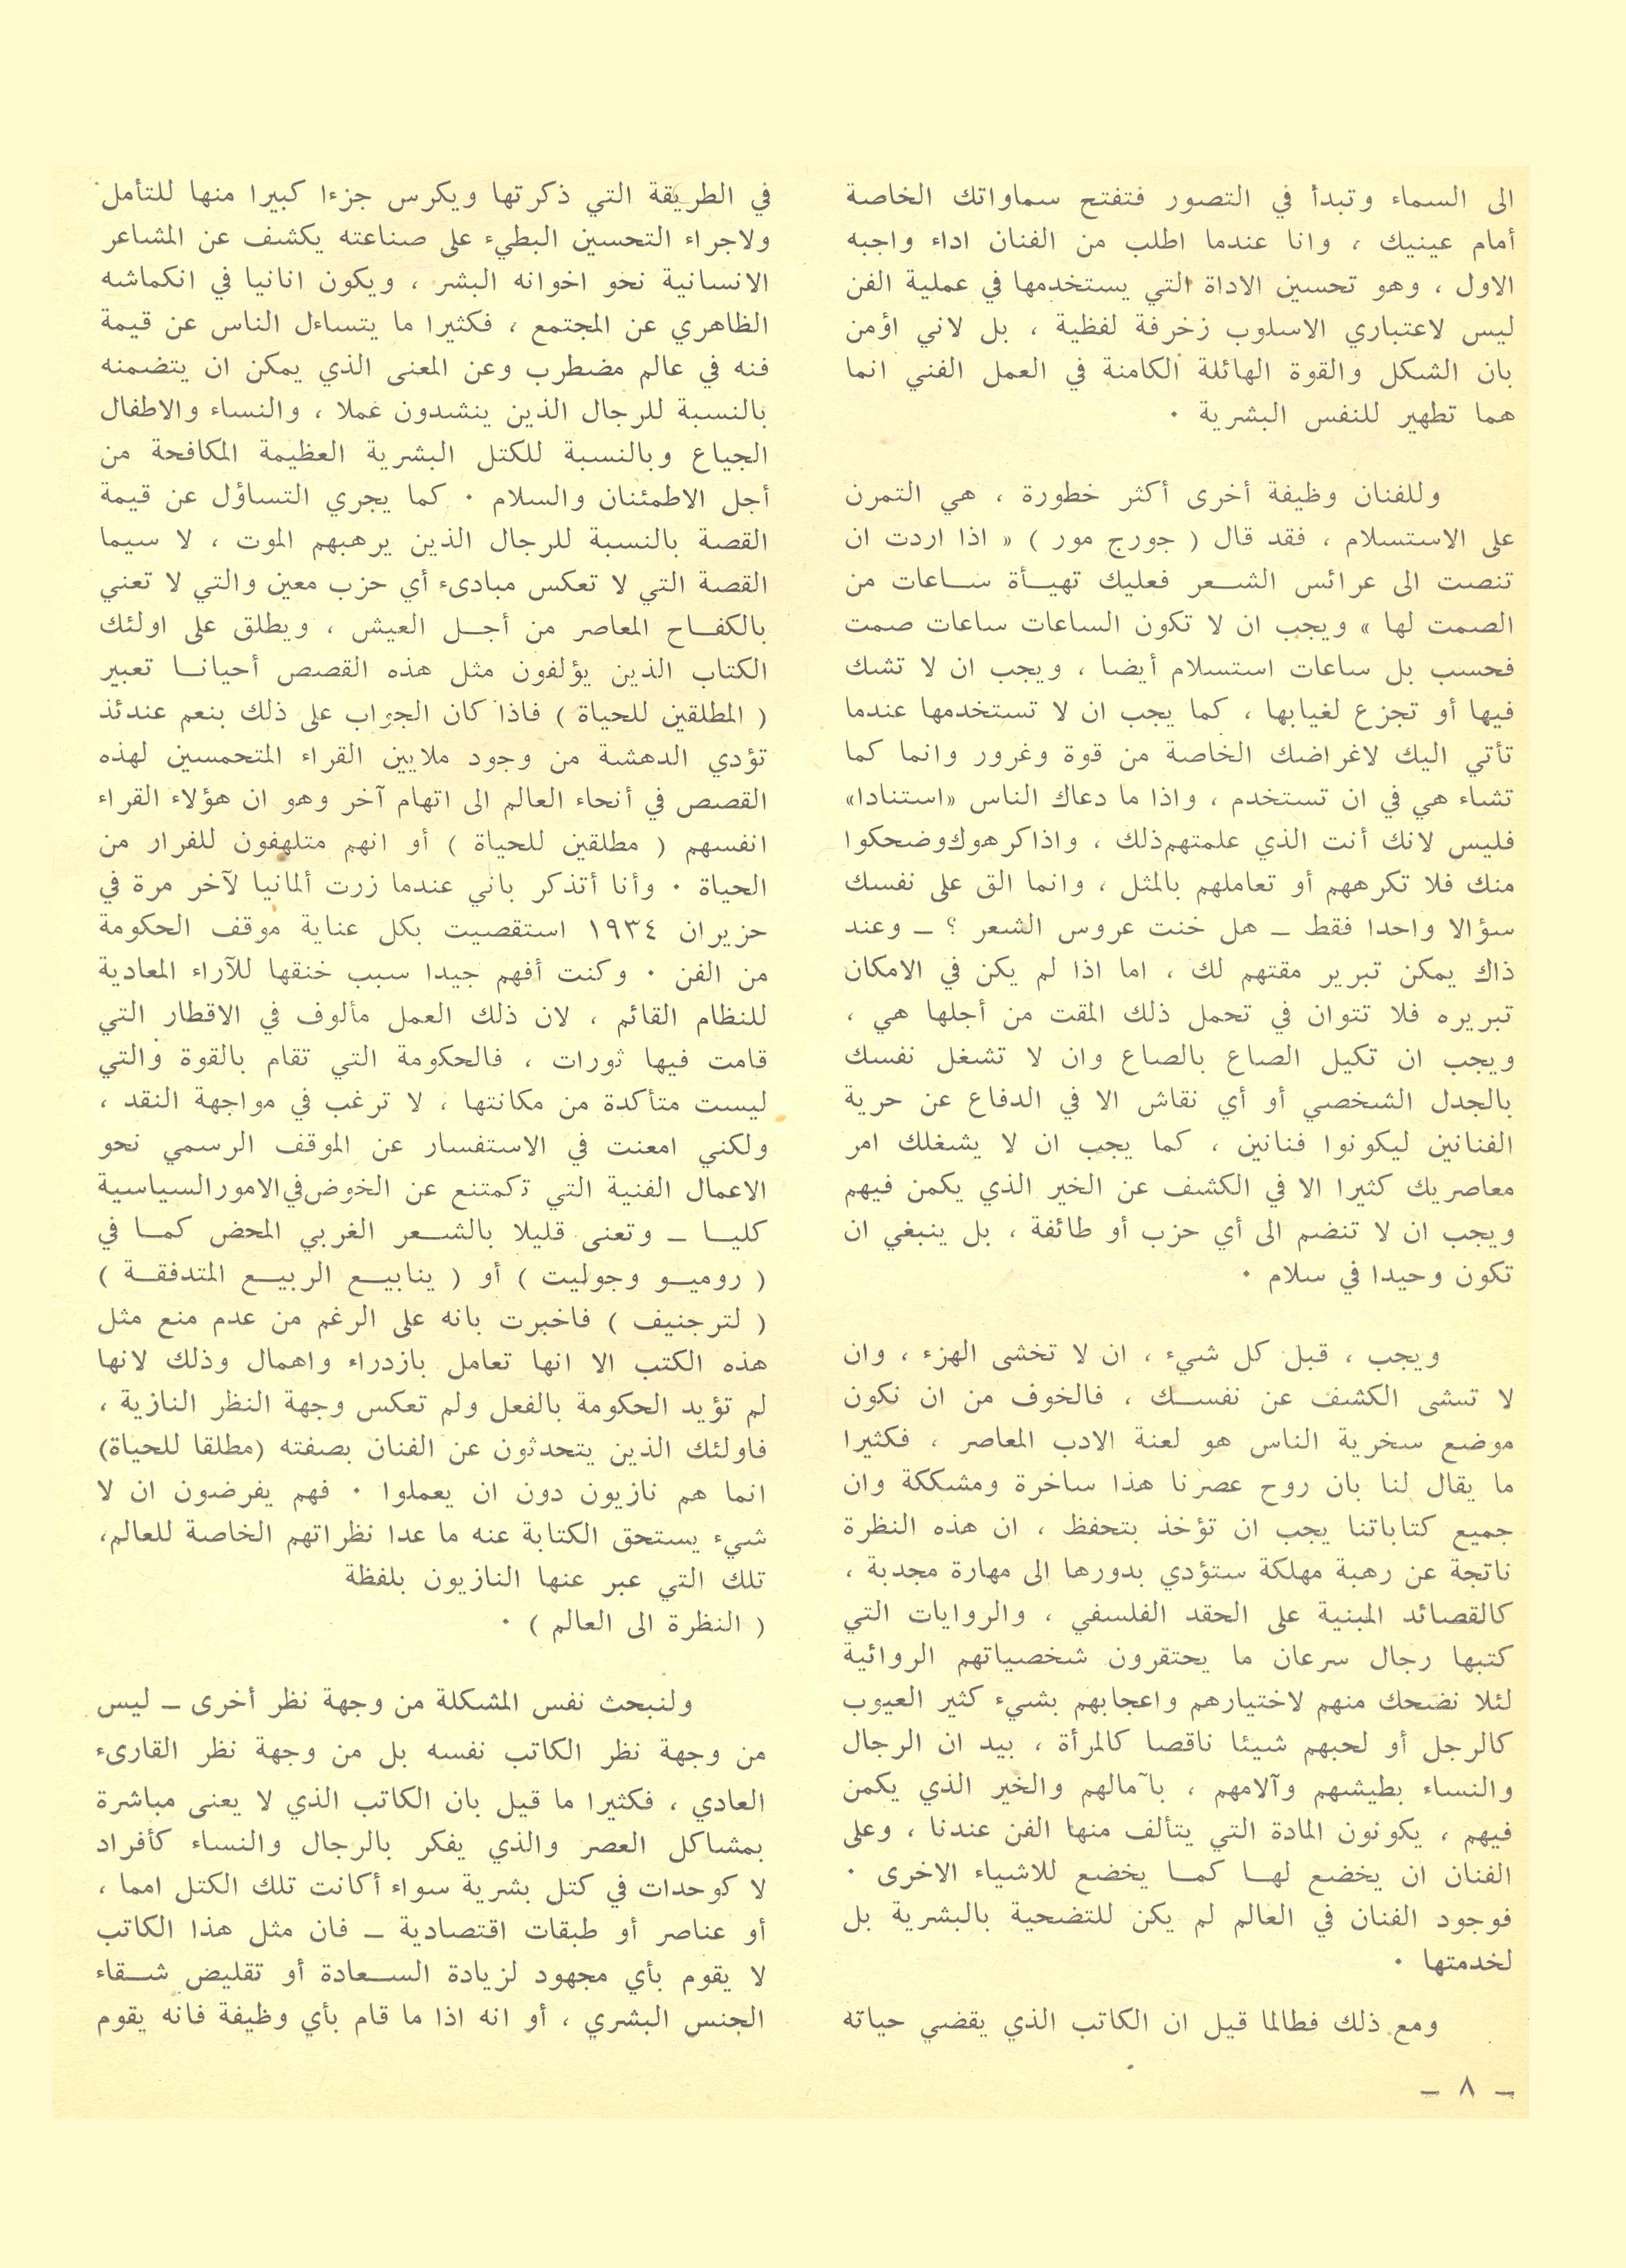 الى السماء وتبدأ في التصور فتفتح سماواتك الخاصة
أمام عينيك ، وانا عندما اطلب من الفنان اداء واجبه
الاول ، وهو تحسين الاداة التي يستخدمها في عملية الفن
ليس لاعتباري الاسلوب زخرفة لفظية ، بل لاني اؤمن
بان الشكل والقوة الهائلة الكامنة في العمل الفني انما
هما تطهير للنفس البشرية ٠
وللفنان وظيفة أخرى أكثر خطورة ، هي التمرن
على الاستسلام ، فقد قال ( جورج مور ) « اذا اردت ان
تنصت الى عرائس الشعر فعليك تهيأة ساعات من
الصمت لها » ويجب ان لا تكون الساعات ساعات صمت
فحسب بل ساعات استسلام أيضا ، ويجب ان لا تشك
فيها أو تجزع لغيابها ، كما يجب ان لا تستخدمها عندما
تأتي اليك لاغراضك الخاصة من قوة وغرور وانما كما
تشاء هي في ان تستخدم ، واذا ما دعاك الناس «استنادا»
فليس لانك أنت الذي علمتهم ذلك ، واذا كرهوك وضحكوا
منك فلا تكرههم أو تعاملهم بالمثل ، وانما الق على نفسك
سؤالا واحدا فقط ــ هل خنت عروس الشعر ؟ ــ وعند
ذاك يمكن تبرير مقتهم لك ، اما اذا لم يكن في الامكان
تبريره فلا تتوان في تحمل ذلك المقت من أجلها هي ،
ويجب ان تكيل الصاع بالصاع وان لا تشغل نفسك
بالجدل الشخصي أو أي نقاش الا في الدفاع عن حرية
الفنانين ليكونوا فنانين ، كما يجب ان لا يشغلك امر
معاصريك كثيرا الا في الكشف عن الخير الذي يكمن فيهم
ويجب ان لا تنضم الى أي حزب أو طائفة ، بل ينبغي ان
تكون وحيدا في سلام ٠
ويجب ، قبل كل شيء ، ان لا تخشى الهزء ، وان
لا تسشى الكشف عن نفسك ، فالخوف من ان نكون
موضع سخرية الناس هو لعنة الادب المعاصر ، فكثيرا
ما يقال لنا بان روح عصرنا هذا ساخرة ومشككة وان
جميع كتاباتنا يجب ان تؤخذ بتحفظ ، ان هذه النظرة
ناتجة عن رهبة مهلكة ستؤدي بدورها الى مهارة مجدبة ،
كالقصائد المبنية على الحقد الفلسفي ، والروايات التي
كتبها رجال سرعان ما يحتقرون شخصياتهم الروائية
لئلا نضحك منهم لاختيارهم واعجابهم بشيء كثير العيوب
كالرجل أو لحبهم شيئا ناقصا كالمرأة ، بيد ان الرجال
والنساء بطيشهم وآلامهم ، بآمالهم والخير الذي يكمن
فيهم ، يكونون المادة التي يتألف منها الفن عندنا ، وعلى
الفنان ان يخضع لها كما يخضع للاشياء الاخرى ٠
فوجود الفنان في العالم لم يكن للتضحية بالبشرية بل
لخدمتها ٠
ومع ذلك فطالما قيل ان الكاتب الذي يقضي حياته
في الطريقة التي ذكرتها ويكرس جزءا كبيرا منها للتأمل
ولاجراء التحسين البطيء على صناعته يكشف عن المشاعر
الانسانية نحو اخوانه البشر ، ويكون انانيا في انكماشه
الظاهري عن المجتمع ، فكثيرا ما يتساءل الناس عن قيمة
فنه في عالم مضطرب وعن المعنى الذي يمكن ان يتضمنه
بالنسبة للرجال الذين ينشدون عملا ، والنساء والاطفال
الجياع وبالنسبة للكتل البشرية العظيمة المكافحة من
أجل الاطمئنان والسلام ٠ كما يجري التساؤل عن قيمة
القصة بالنسبة للرجال الذين يرهبهم الموت ، لا سيما
القصة التي لا تعكس مبادىء أي حزب معين والتي لا تعني
بالكفاح المعاصر من أجل العيش ، ويطلق على اولئك
الكتاب الذين يؤلفون مثل هذه القصص أحيانا تعبير
( المطلقين للحياة ) فاذا كان الجواب على ذلك بنعم عندئذ
تؤدي الدهشة من وجود ملايين القراء المتحمسين لهذه
القصص في أنحاء العالم الى اتهام آخر وهو ان هؤلاء القراء
انفسهم ( مطلقين للحياة ) أو انهم متلهفون للفرار من
الحياة ٠ وأنا أتذكر باني عندما زرت ألمانيا لآخر مرة في
حزيران ١٩٣٤ استقصيت بكل عناية موقف الحكومة
من الفن ٠ وكنت أفهم جيدا سبب خنقها للآراء المعادية
للنظام القائم ، لان ذلك العمل مألوف في الاقطار التي
قامت فيها ثورات ، فالحكومة التي تقام بالقوة والتي
ليست متأكدة من مكانتها ، لا ترغب في مواجهة النقد ،
ولكني امعنت في الاستفسار عن الموقف الرسمي نحو
الاعمال الفنية التي تكمتنع عن الخوض في الامور السياسية
كليا ــ وتعنى قليلا بالشعر الغربي المحض كما في
( روميو وجوليت ) أو ( ينابيع الربيع المتدفقة )
( لترجنيف ) فاخبرت بانه على الرغم من عدم منع مثل
هذه الكتب الا انها تعامل بازدراء واهمال وذلك لانها
لم تؤيد الحكومة بالفعل ولم تعكس وجهة النظر النازية ،
فاولئك الذين يتحدثون عن الفنان بصفته (مطلقا للحياة)
انما هم نازيون دون ان يعملوا ٠ فهم يفرضون ان لا
شيء يستحق الكتابة عنه ما عدا نظراتهم الخاصة للعالم،
تلك التي عبر عنها النازيون بلفظة
( النظرة الى العالم ) ٠
ولنبحث نفس المشكلة من وجهة نظر أخرى ــ ليس
من وجهة نظر الكاتب نفسه بل من وجهة نظر القارىء
العادي ، فكثيرا ما قيل بان الكاتب الذي لا يعنى مباشرة
بمشاكل العصر والذي يفكر بالرجال والنساء كأفراد
لا كوحدات في كتل بشرية سواء أكانت تلك الكتل امما ،
أو عناصر أو طبقات اقتصادية ــ فان مثل هذا الكاتب
لا يقوم بأي مجهود لزيادة السعادة أو تقليض شقاء
الجنس البشري ، أو انه اذا ما قام بأي وظيفة فانه يقوم
ــ ٨ ــ